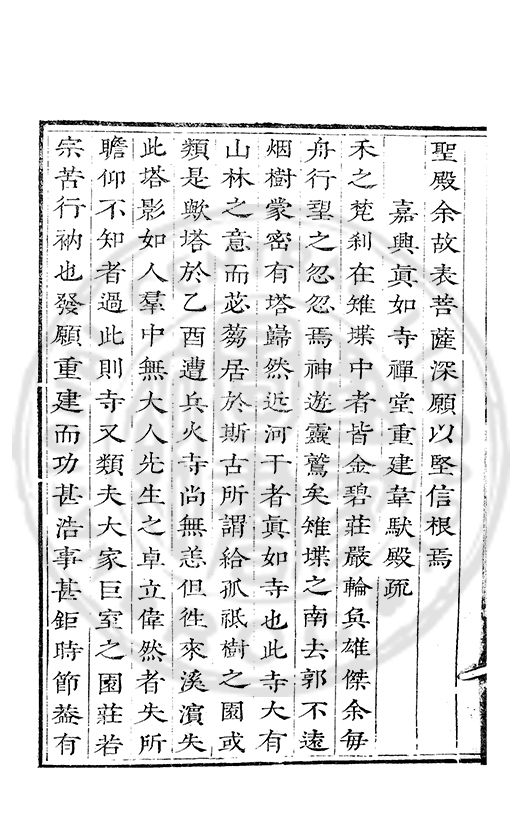 聖殿余故表菩薩深願以堅信根焉
嘉興眞如寺禪堂重建韋馱殿疏
禾之梵刹在雉堞中者皆金碧莊嚴輪奐雄傑余每
舟行望之忽忽焉神遊靈鷲矣雉堞之南去郭不遠
烟樹蒙密有塔巋然近河干者眞如寺也此寺大有
山林之意而苾蒭居於斯古所謂給孤祇樹之園或
類是歟塔於乙酉遭兵火寺尚無恙但徃來溪濵失
此塔影如人羣中無大人先生之卓立偉然者失所
瞻仰不知者過此則寺又類夫大家巨室之園莊若
宗苦行衲也發願重建而功甚浩事甚鉅時節葢有